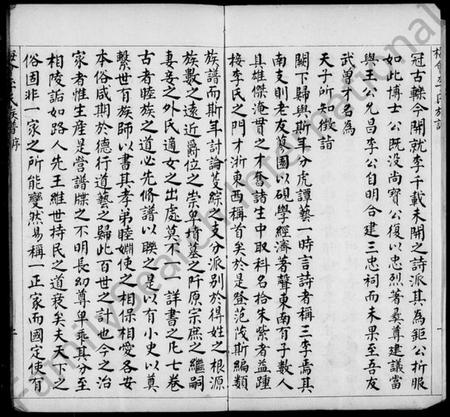 冠古轢今開就李千載未開之詩派其為鉅公折服
如此博士公既沒尚寶公復以忠烈著彝尊建議當
與王公允昌李公自明合建三忠祠而未果至吾友
武曾才名為
天子所知徵詣
闕下歸與斯年分虎譚藝一時言詩者稱三李焉其
南支則老友蓼園以硯學經濟著聲東南有子數人
具雄傑淹貫之才奮諸生中取科名拾朱紫者益踵
接李氏之門才浙東西稱首矣於是登范茂斯編類
族譜而斯年討論芟綜之支分派別於得姓之源根
族數之遠近爵位之崇卑墳墓之阡原宗庶之繼嗣
妻妾之外氏適女之出處莫不一一詳書之凡七卷
古者睦族之道必先脩譜以聯之是以有小史以奠
繫世百族師以書其孝弟睦婣使之相保相愛各安
本俗咸期於德行道藝之歸此百世之計也今之治
家者惟生產是營譜牒之不明長幼尊卑乖其分至
相陵詬如路人先王維世持民之道衰矣夫天下之
俗固非一家之所能變然易稱一正家而國定使有